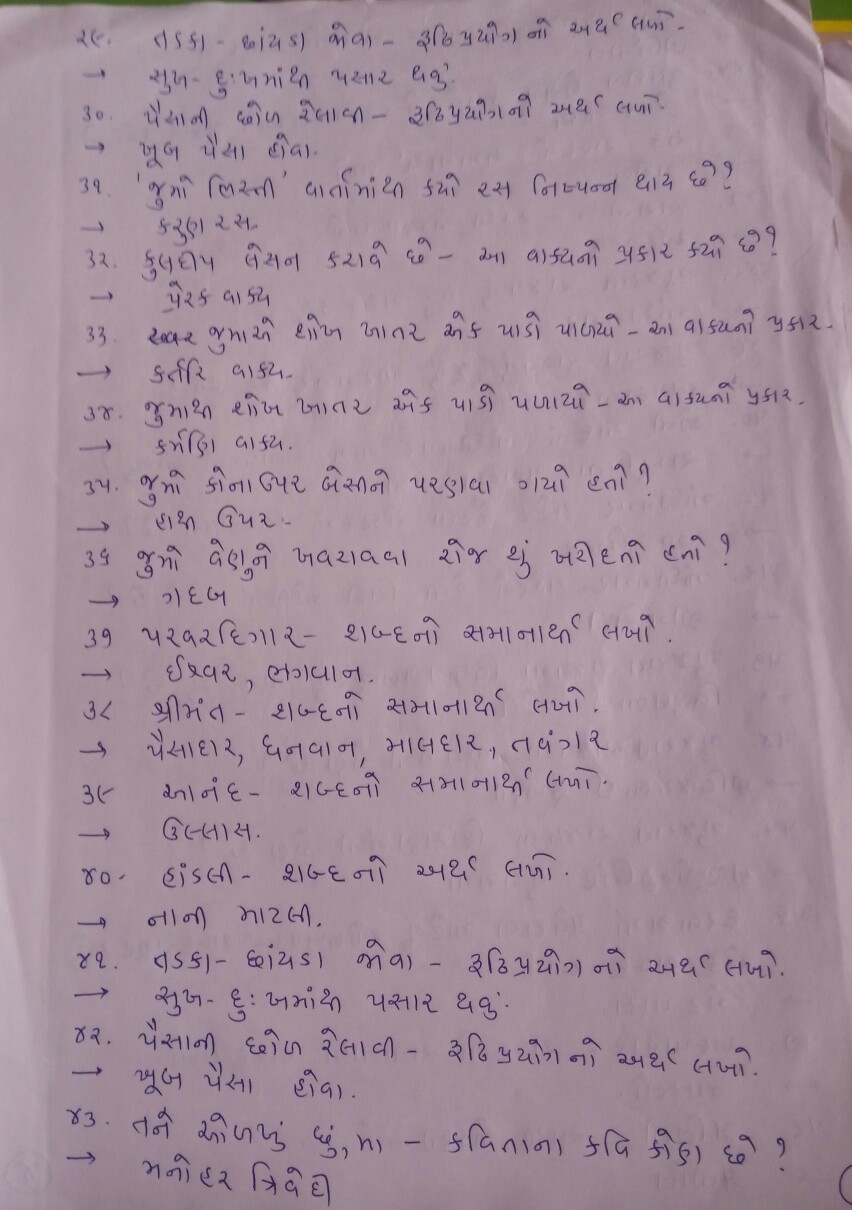 ૨૯. તડકા - છાંયડા જોવા - રૂઢિપ્રયોગનો અર્થ લખો.
→ સુખ - દુઃખમાંથી પસાર થવું.
૩૦. પૈસાની છોળ રેલાવી - રૂઢિપ્રયોગનો અર્થ લખો.
→ ખૂબ પૈસા હોવા.
૩૧. 'જુમો ભિસ્તી' વાર્તામાંથી કયો રસ નિષ્પન્ન થાય છે?
→ કરુણ રસ.
૩૨. કુલદીપ લેસન કરાવે છે - આ વાક્યનો પ્રકાર કયો છે?
→ પ્રેરક વાક્ય
૩૩. જુમાએ શોખ ખાતર એક પાડો પાળ્યો - આ વાક્યનો પ્રકાર.
→ કર્તરિ વાક્ય.
૩૪. જુમાથી શોખ ખાતર એક પાડો પળાયો - આ વાક્યનો પ્રકાર.
→ કર્મણિ વાક્ય.
૩૫. જુમો કોના ઉપર બેસીને પરણવા ગયો હતો?
→ હાથી ઉપર.
૩૬ જુમો વેણુને ખવરાવવા રોજ શું ખરીદતો હતો?
→ ગદબ
૩૭ પરવરદિગાર - શબ્દનો સમાનાર્થી લખો.
→ ઈશ્વર, ભગવાન.
૩૮ શ્રીમંત - શબ્દનો સમાનાર્થી લખો.
→ પૈસાદાર, ધનવાન, માલદાર, તવંગર
૩૯ આનંદ - શબ્દનો સમાનાર્થી લખો.
→ ઉલ્લાસ.
૪૦. હાંડલી - શબ્દનો અર્થ લખો.
→ નાની માટલી.
૪૧. તડકા - છાંયડા જોવા - રૂઢિપ્રયોગનો અર્થ લખો.
→ સુખ - દુઃખમાંથી પસાર થવું.
૪૨. પૈસાની છોળ રેલાવી - રૂઢિપ્રયોગનો અર્થ લખો.
→ ખૂબ પૈસા હોવા.
૪૩. તને ઓળખું છું, મા - કવિતાના કવિ કોણ છે?
→ મનોહર ત્રિવેદી